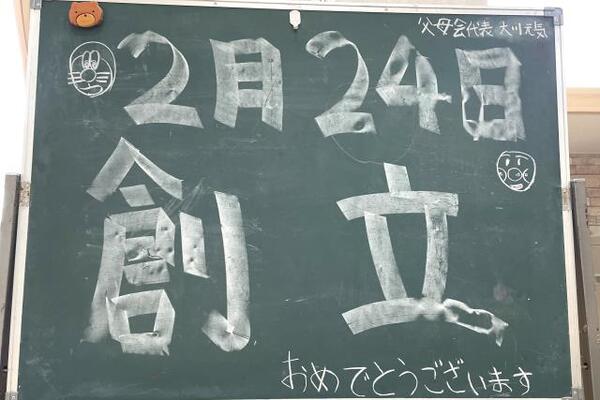 父母会代表 大川元気
2月24日
創立
おめでとうございます